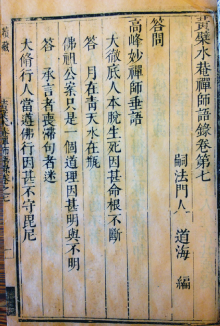 黃檗水巷禪師語錄卷第七
嗣法門人 道海 編
答問
高峰妙禪師垂語
大徹底人本脫生死因甚命根不斷
答 月在青天水在瓶
佛祖公案只是一個道理因甚有明與不明
答 承言者喪滯句者迷
大修行人當遵佛行因甚不守毘尼